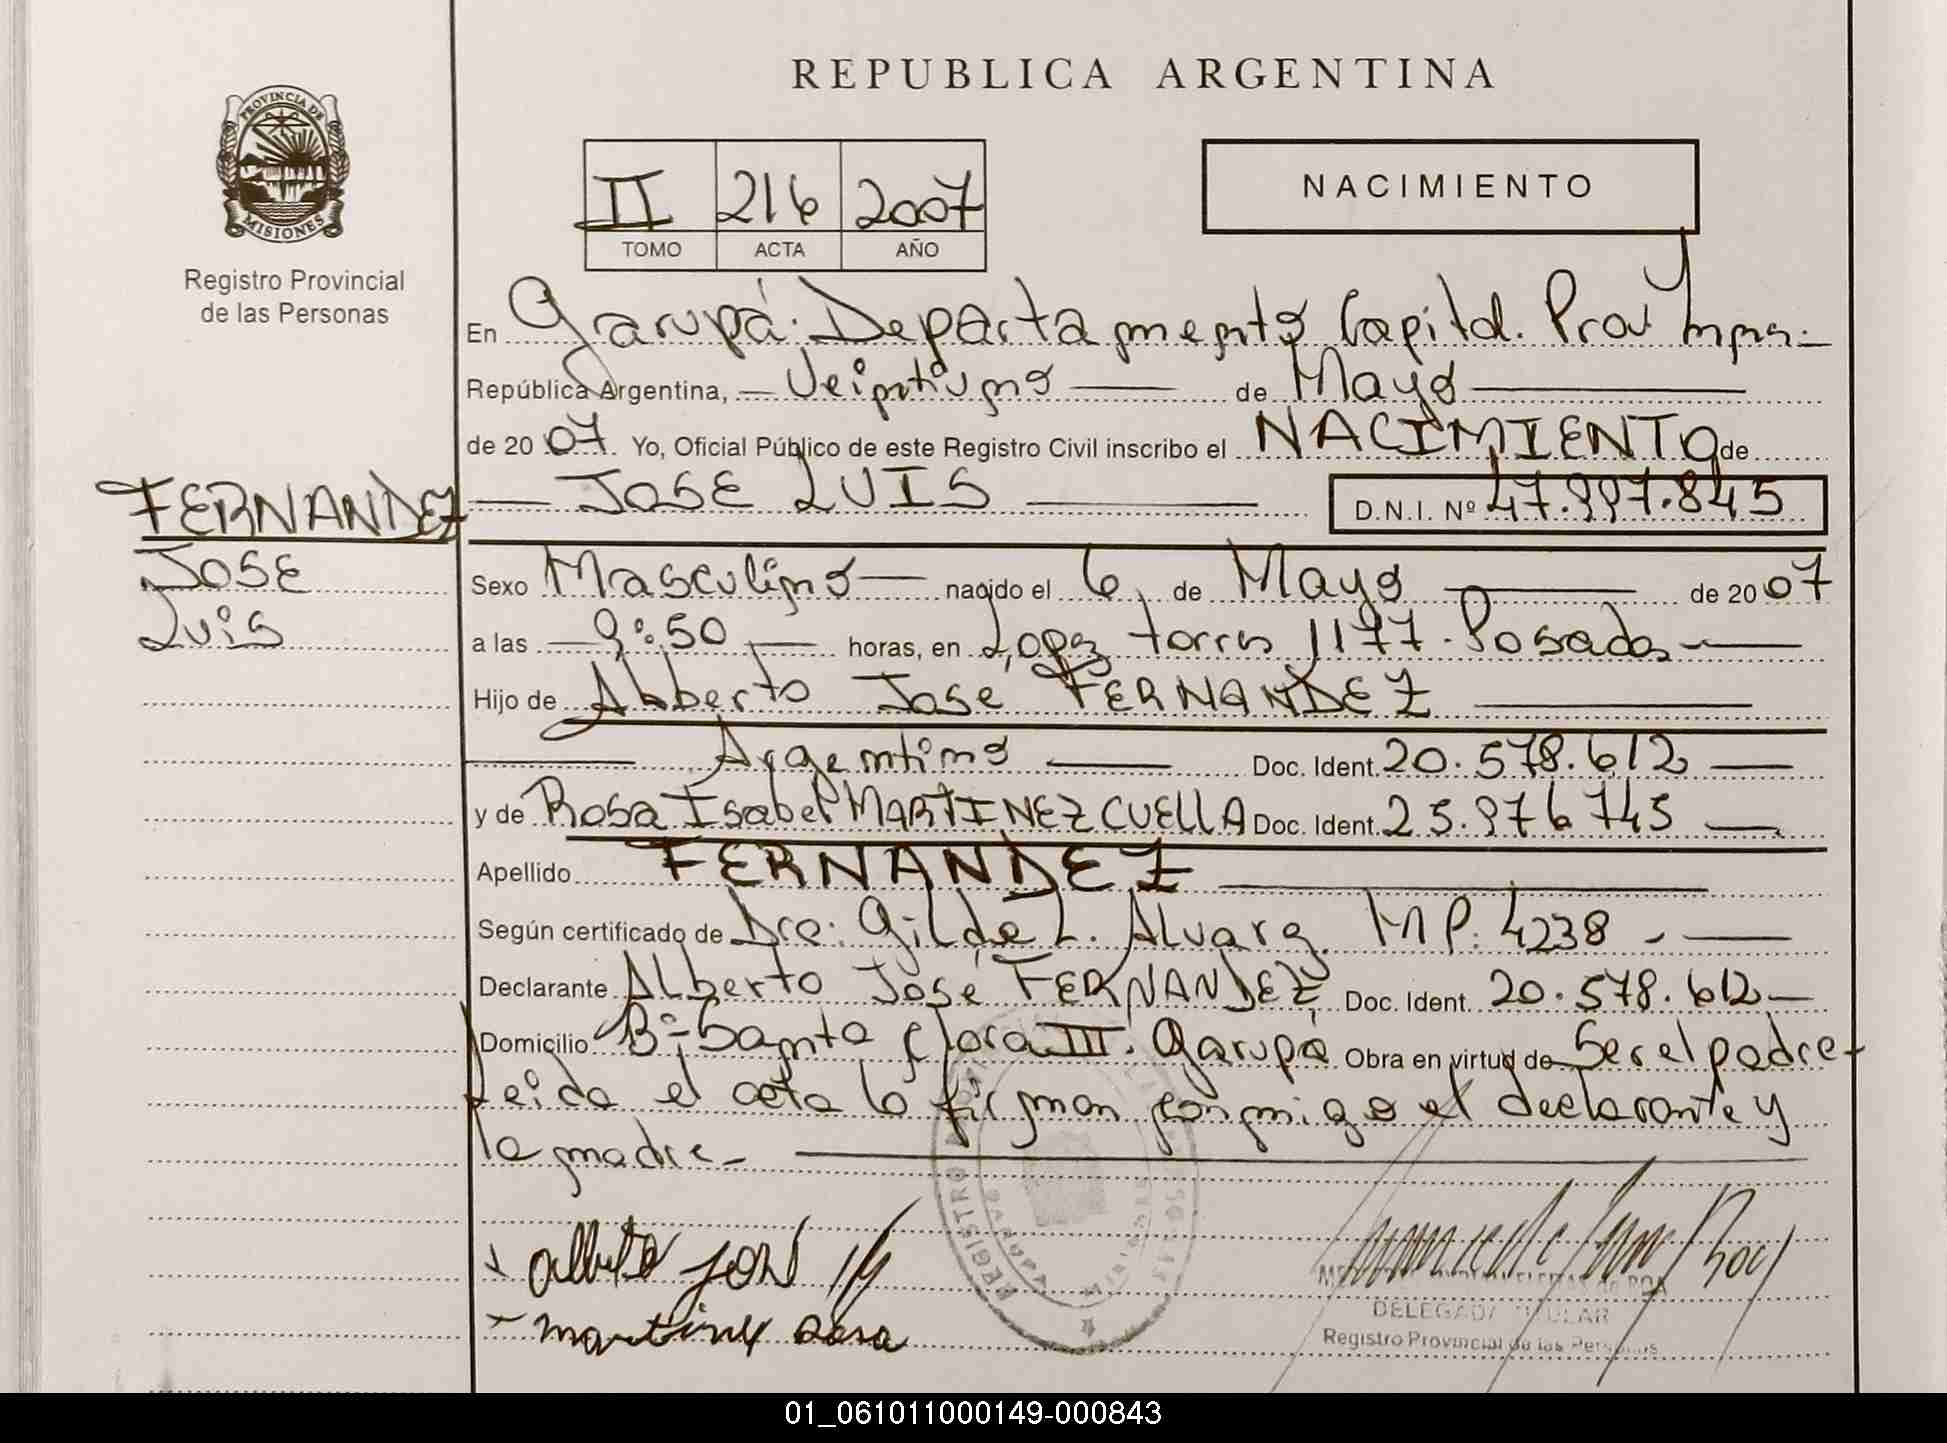 REPUBLICA ARGENTINA
PROVINCIA DE
MISIONES
Registro Provincial
de las Personas
II 216 2007
TOMO ACTA AÑO
NACIMIENTO
En Garupá. Departamento Capital. Prov Mnes.
República Argentina, Veintiuno de Mayo
de 2007 Yo, Oficial Público de este Registro Civil inscribo el NACIMIENTO de
JOSE LUIS D.N.I. Nº 47.997.845
FERNANDEZ
JOSE
Luis
Sexo Masculino nacido el 6 de Mayo de 2007
a las 9:50 horas, en López torres 1177. Posadas
Hijo de Alberto José FERNANDEZ
Argentino Doc. Ident. 20.578.612
y de Rosa Isabel MARTINEZ CUELLA Doc. Ident. 25.976745
Apellido FERNANDEZ
Según certificado de Dra: Gilda L. Alvarez. MP. 4238
Declarante Alberto José FERNANDEZ Doc. Ident. 20.578.612
Domicilio Bº Santa Clara III. Garupá Obra en virtud de Ser el padre
Leida el acta la firman conmigo el declarante y
la madre
alberto josé
martinez rosa
REGISTRO
GARUPA
DE ROA
DELEGADA TITULAR
Registro Provincial de las Personas
01_061011000149-000843